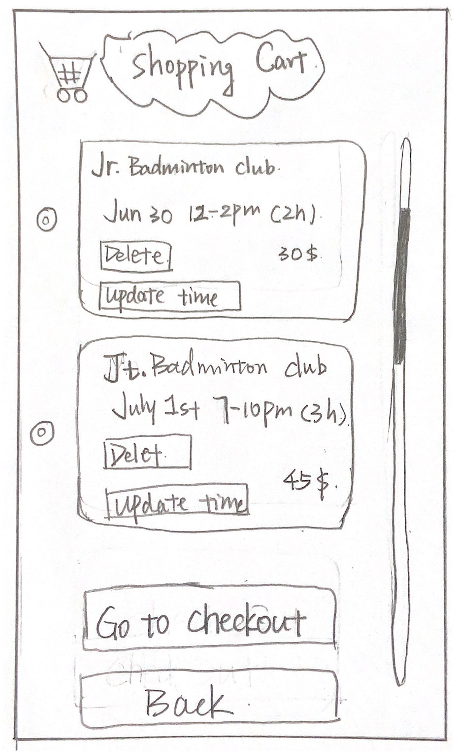 Shopping Cart
Jr. Badminton club
Jun 30 12-2pm (2h)
Delete
30$
update time
Jt. Badminton club
July 1st 7-10pm (3h)
Delet
45$
update time
Go to checkout
Back